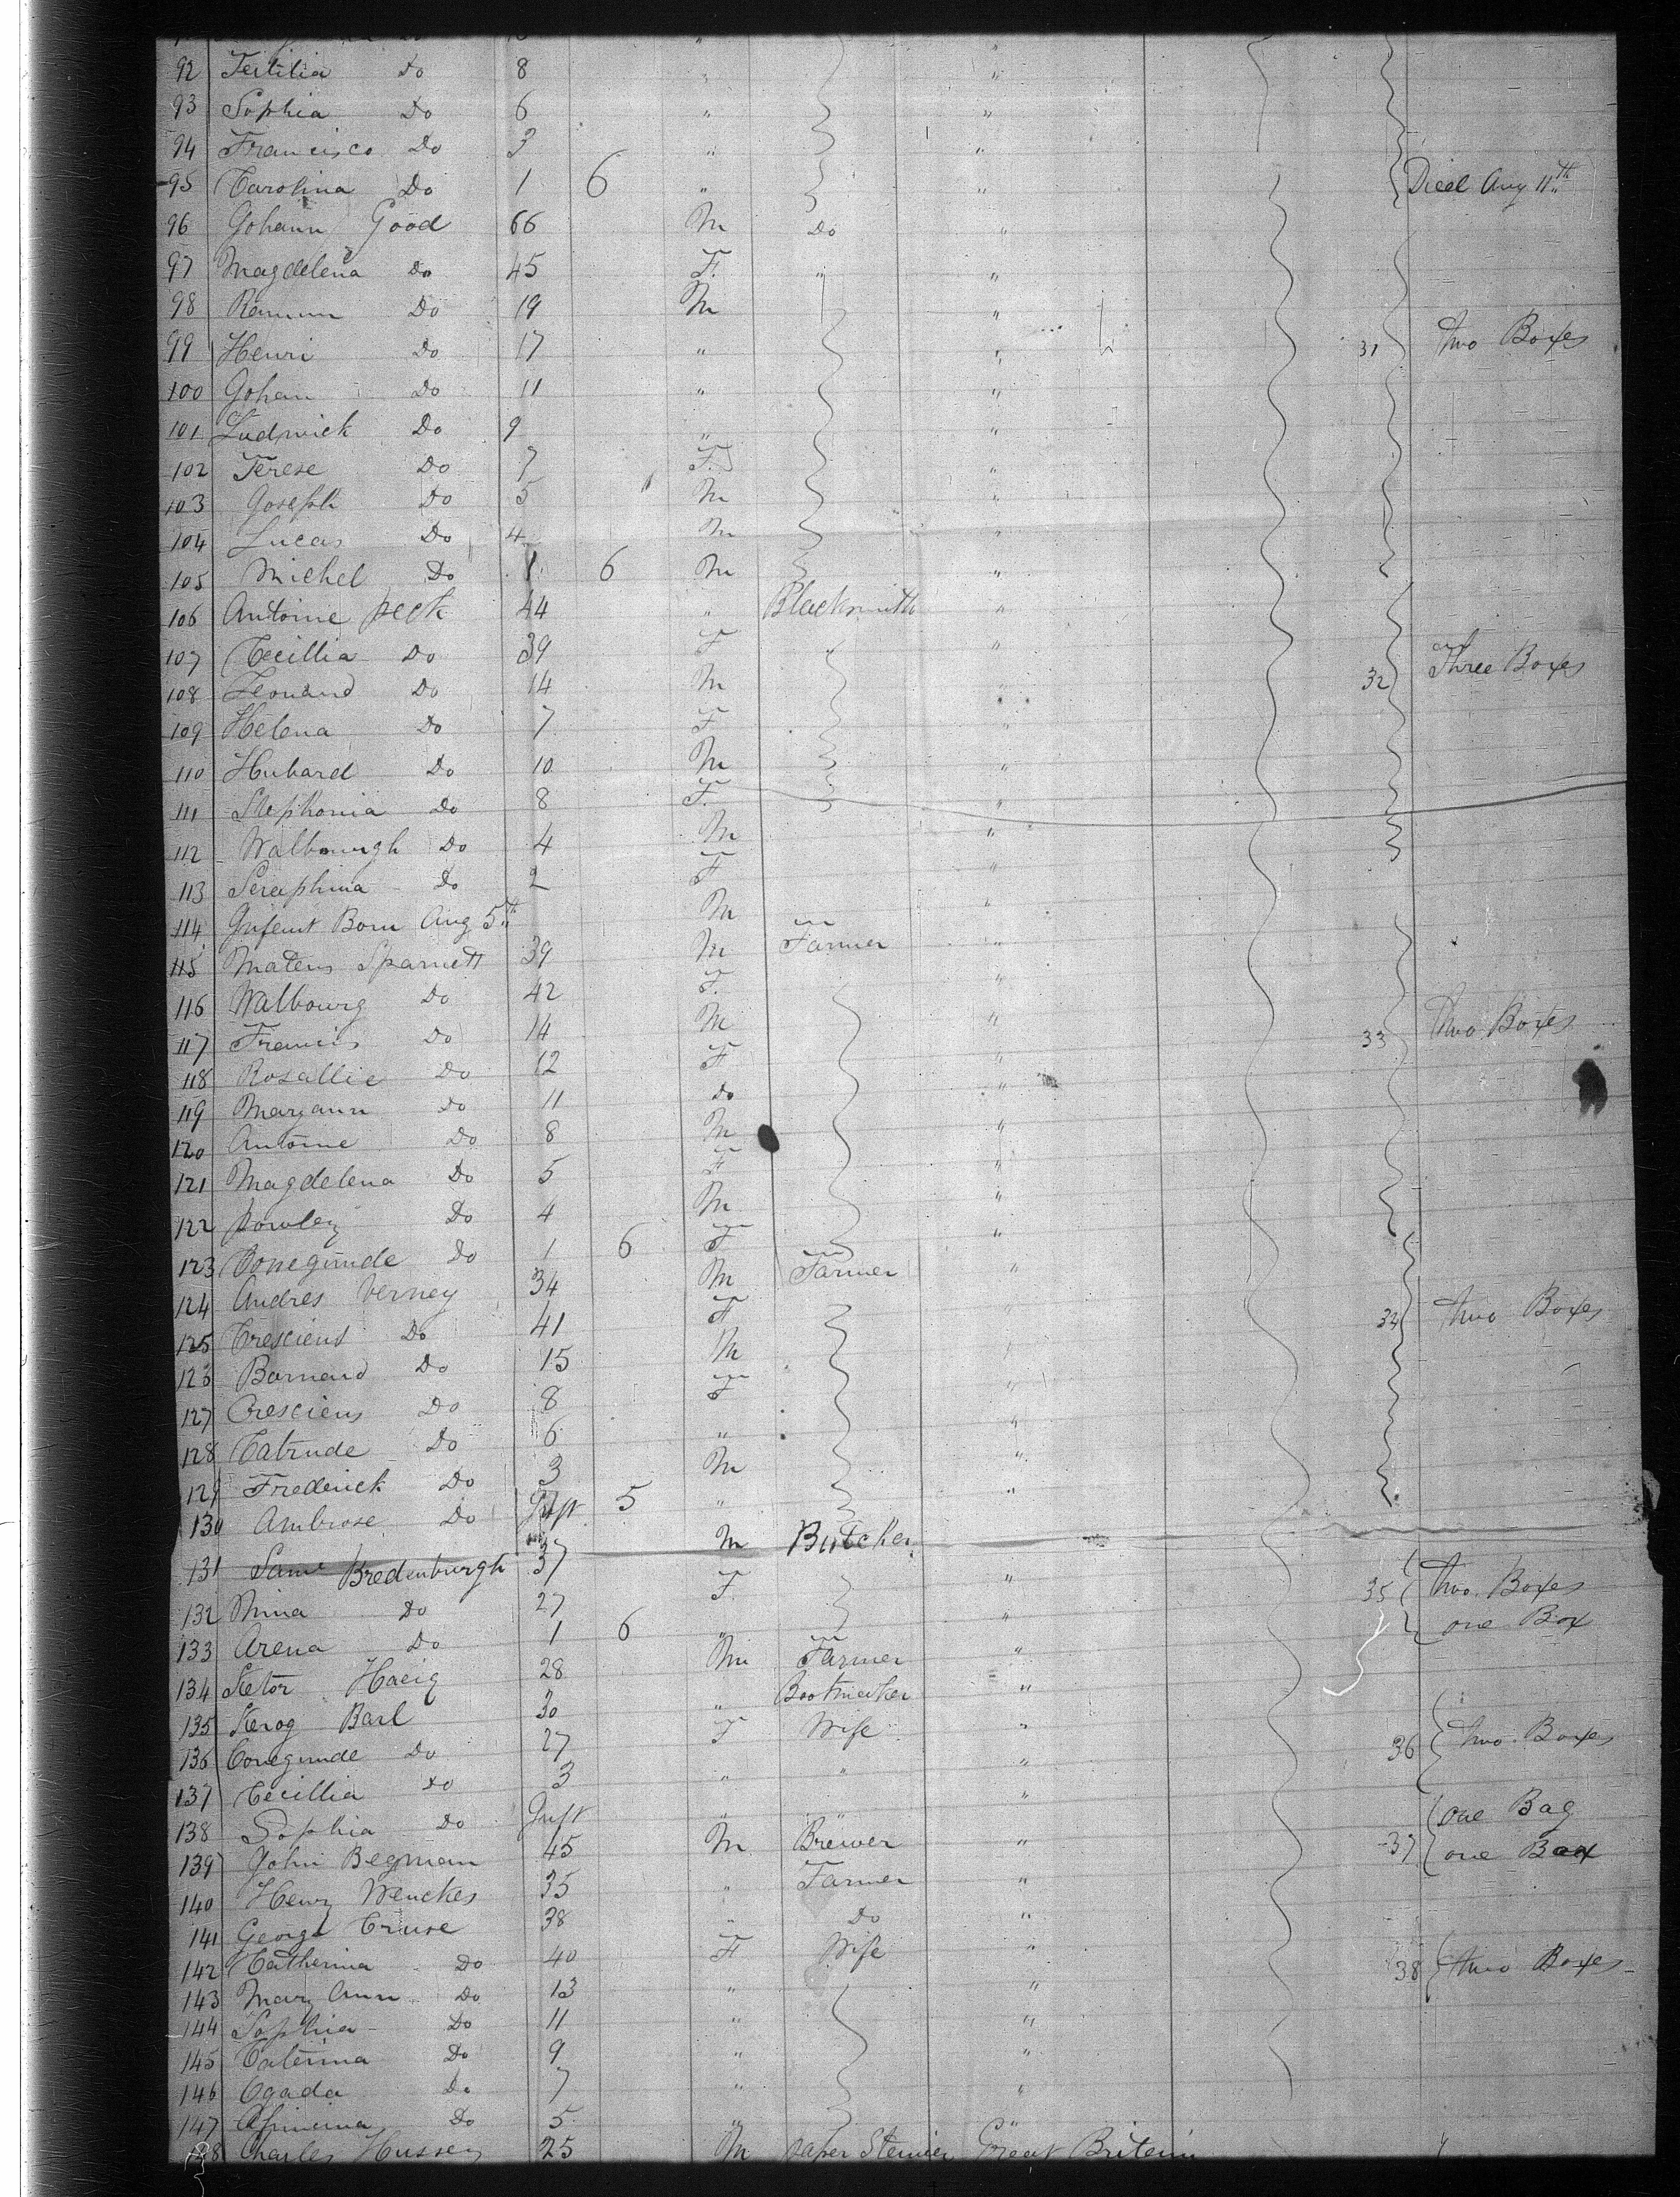 92 Tertilia Do 8 " "
93 Sophia Do 6 " "
94 Francisco Do 3 " "
95 Carolina Do 1 6 " " Died Aug 11th
96 Johann Good 66 M Do "
97 Magdelena Do 45 F. " "
98 Do 19 M "
99 Henri Do 17 " " 31 two Boxes
100 Johan Do 11 " "
101 Ludwick Do 9 " "
102 Terese Do 7 F. "
103 Joseph Do 5 M "
104 Lucas Do 4 M "
105 Michel Do 1 6 M "
106 Antoine Peck 44 " Blacksmith "
107 Cecillia Do 39 F " "
108 Leonard Do 14 M " 32 Three Boxes
109 Helena Do 7 F "
110 Hubard Do 10 M "
111 Stephonia Do 8 F. "
112 Walbourgh Do 4 M "
113 Seraphina Do 2 F "
114 Infant Born Aug 5th M "
115 Matens Sparnett 39 M Farmer "
116 Walbourg Do 42 F. "
117 Francis Do 14 M " 33 two Boxes
118 Rosallie Do 12 F "
119 Maryann Do 11 Do "
120 Antoine Do 8 M "
121 Magdelena Do 5 F "
122 Powley Do 4 M "
123 Conegunde Do 1 6 F "
124 Andres Verney 34 M Farmer "
125 Cresciens Do 41 F " 34 two Boxes
123 Barnard Do 15 M "
127 Cresciens Do 8 F "
128 Catrude Do 6 " "
129 Frederick Do 3 M "
130 Ambrose Do Inft 5 " "
131 Saml Bredenburgh 37 M Butcher
132 Mina Do 27 F. " 35 two Boxes
133 Arena Do 1 6 " " one Box
134 Haeig 28 M Farmer "
135 Barl 30 " Bootmaker "
136 Conegunde Do 27 F Wife " 36 two Boxes
137 Cecillia Do 3 " " "
138 Sophia Do Inft " " " one Bag
139 John Begman 45 M Brewer " 37 one Box
140 Henry Wenckes 35 " Farmer "
141 George Cruse 38 " Do "
142 Catherina Do 40 F Wife " 38 two Boxes
143 Mary Ann Do 13 " "
144 Sophia Do 11 " "
145 Caterina Do 9 " "
146 Agada Do 7 " "
147 Do 5 " "
148 Charles Hussey 25 M Paper Stainer Great Britain